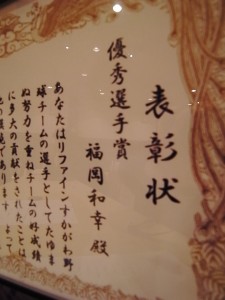 表彰状
優秀選手賞
福岡和幸殿
あなたはリファインすかがわ野
球チームの選手としてたゆま
ぬ努力を重ねチームの好成績
に多大の貢献をされたことは
であります よって